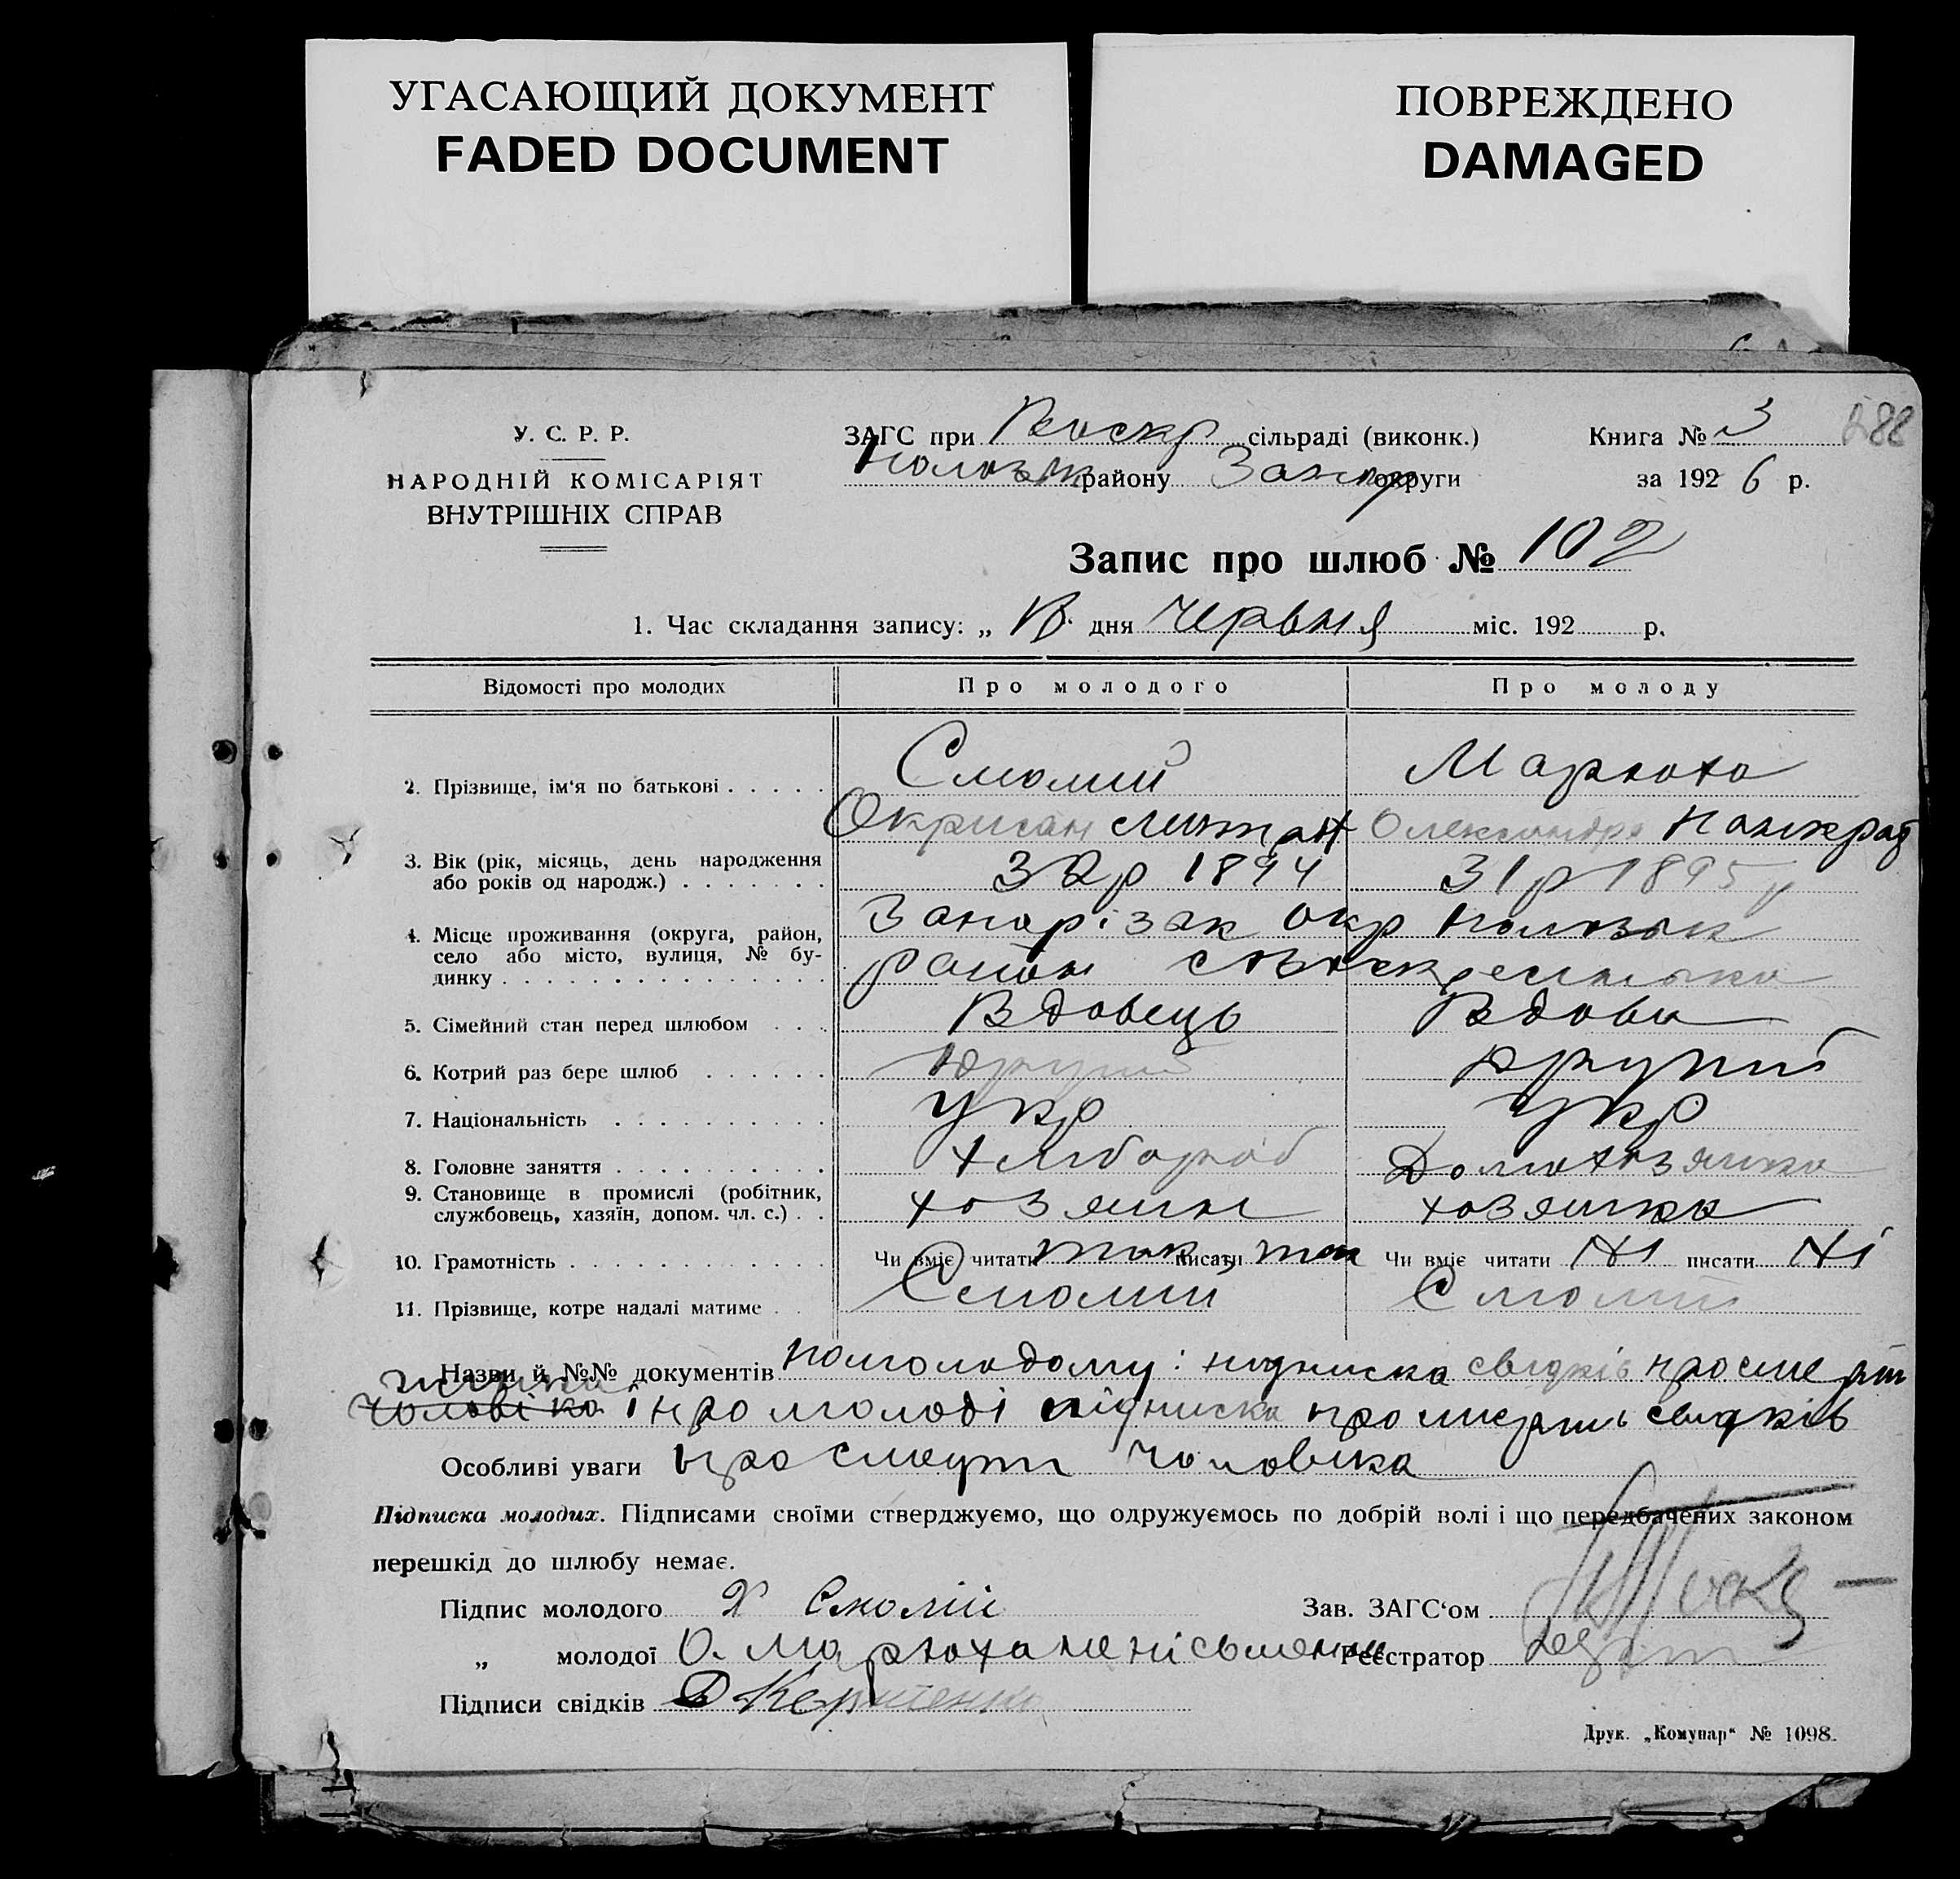 УГАСАЮЩИЙ ДОКУМЕНТ
FADED DOCUMENT
ПОВРЕЖДЕНО
DAMAGED
288
У. С. Р. Р.
НАРОДНІЙ КОМІСАРІЯТ
ВНУТРІШНІХ СПРАВ
ЗАГС при Воскр сільраді (виконк.)
району Запор округи
Книга № 3
за 1926 р.
Запис про шлюб № 102
1. Час складання запису: „ дня червня міс. 192 р.
Відомості про молодих
Про молодого
Про молоду
2. Прізвище, ім'я по батькові
Смолий
Марюха
Олександра Панкрат
3. Вік (рік, місяць, день народження
або років од народж.)
32р 1894
31р 1895р
4. Місце проживання (округа, район,
село або місто, вулиця, № бу-
динку
Запорізак окр
район
5. Сімейний стан перед шлюбом
Вдовець
Вдова
6. Котрий раз бере шлюб
другий
другий
7. Національність
укр
укр
8. Головне заняття
хлібороб
Домохозяйка
9. Становище в промислі (робітник,
службовець, хазяїн, допом. чл. с.)
хозяин
хозяйка
10. Грамотність
Чи вміє читати так писати так
Чи вміє читати Ні писати Ні
11. Прізвище, котре надалі матиме
Смолий
Смолий
Назви й №№ документів помолодому: підписка свідків про смерть
чоловіка і про молоді підписка про свидків
Особливі уваги про смерти чоловіка
Підписка молодих. Підписами своїми стверджуємо, що одружуємось по добрій волі і що передбачених законом
перешкід до шлюбу немає.
Підпис молодого Х Смолій
Зав. ЗАГС'ом
„ молодої О. Марюха
Реєстратор
Підписи свідків
Друк. „Комунар" № 1098.